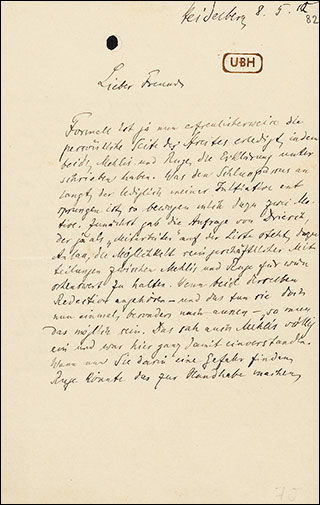 Heidelberg 8. 5.
82
UBH
Lieber Freund,
Formell ist ja nun erfreulicherweise die
persönliche Seite des Streites erledigt, indem
beide, Mehlis und Ruge, die Erklärung unter
schrieben haben. Was den Schlusspassus an
langt, der lediglich meiner Initiative ent
sprungen ist, so bewogen mich dazu zwei Mo-
tive. Zunächst gab die Anfrage von Driesch,
der ja als „Mitarbeiter" auf der Liste steht, dazu
Anlass, die Möglichkeit rein geschäftlicher Mit
teilungen zwischen Mehlis und Ruge für wün
schenswert zu halten. Wenn beide derselben
Redaktion angehören – und das tun sie doch
nun einmal, besonders nach aussen –, so muss
das möglich sein. Das sah auch Mehlis völlig
ein und war hier ganz damit einverstanden.
Wenn nun Sie darin eine Gefahr finden,
Ruge könnte das zur Handhabe machen,